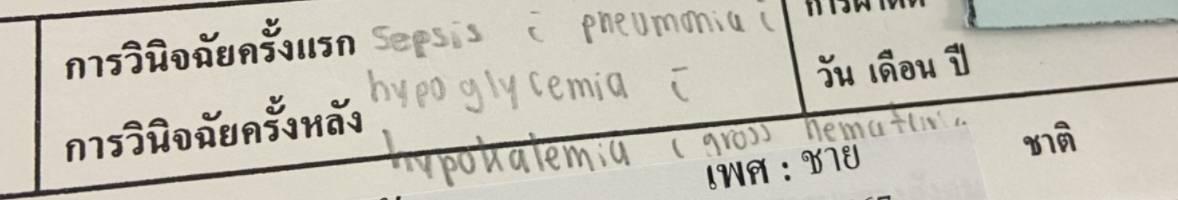 การวินิจฉัยครั้งแรก sepsis c̄ pneumonia c̄
hypoglycemia c̄
การวินิจฉัยครั้งหลัง
hypokalemia c̄ gross hematuria
วัน เดือน ปี
เพศ : ชาย
ชาติ